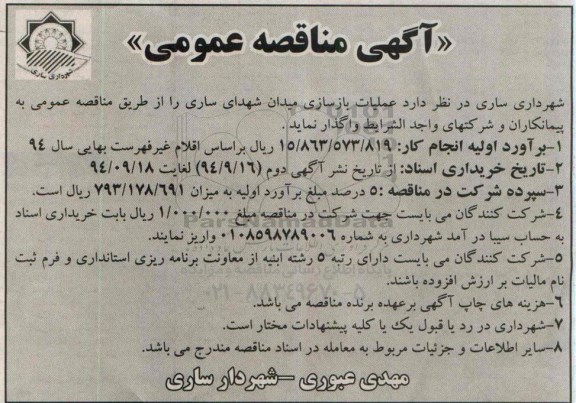 «آگهی مناقصه عمومی»
شهرداری ساری
شهرداری ساری در نظر دارد عملیات بازسازی میدان شهدای ساری را از طریق مناقصه عمومی به
پیمانکاران و شرکتهای واجد الشرایط واگذار نماید.
۱-برآورد اولیه انجام کار: ۱۵/۸۶۳/۵۷۳/۸۱۹ ریال براساس اقلام غیرفهرست بهایی سال ۹۴
۲-تاریخ خریداری اسناد: از تاریخ نشر آگهی دوم (۹۴/۹/۱۶) لغایت ۹۴/۰۹/۱۸
۳-سپرده شرکت در مناقصه :۵ درصد مبلغ برآورد اولیه به میزان ۷۹۳/۱۷۸/۶۹۱ ریال است.
۴-شرکت کنندگان می بایست جهت شرکت در مناقصه مبلغ ۱/۰۰۰/۰۰۰ ریال بابت خریداری اسناد
به حساب سیبا در آمد شهرداری به شماره ۰۱۰۸۵۹۸۷۸۹۰۰۶ واریز نمایند.
۵-شرکت کنندگان می بایست دارای رتبه ۵ رشته ابنیه از معاونت برنامه ریزی استانداری و فرم ثبت
نام مالیات بر ارزش افزوده باشند.
۶-هزینه های چاپ آگهی برعهده برنده مناقصه می باشد.
۷-شهرداری در رد یا قبول یک یا کلیه پیشنهادات مختار است.
۸-سایر اطلاعات و جزئیات مربوط به معامله در اسناد مناقصه مندرج می باشد.
مهدی عبوری –شهردار ساری
ParsNamadData
پایگاه اطلاع رسانی مناقصه و مزایده
۰۲۱-۸۸۳۴۹۶۷۰-۵